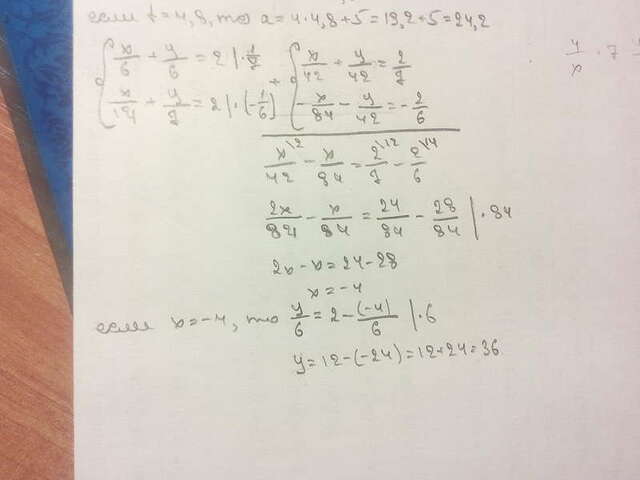 если t = 4,8, то a = 4·4,8+5 = 19,2+5 = 24,2
{ x/6 + y/6 = 2 |·1/7 + { x/42 + y/42 = 2/7
x/14 + y/7 = 2 |·(-1/6) -x/84 - y/42 = -2/6
x\2/42 - x/84 = 2\12/7 - 2\14/6
2x/84 - x/84 = 24/84 - 28/84 |·84
2x - x = 24 - 28
x = -4
если x = -4, то y/6 = 2 - (-4)/6 |·6
y = 12 - (-24) = 12 + 24 = 36
y/x · 7